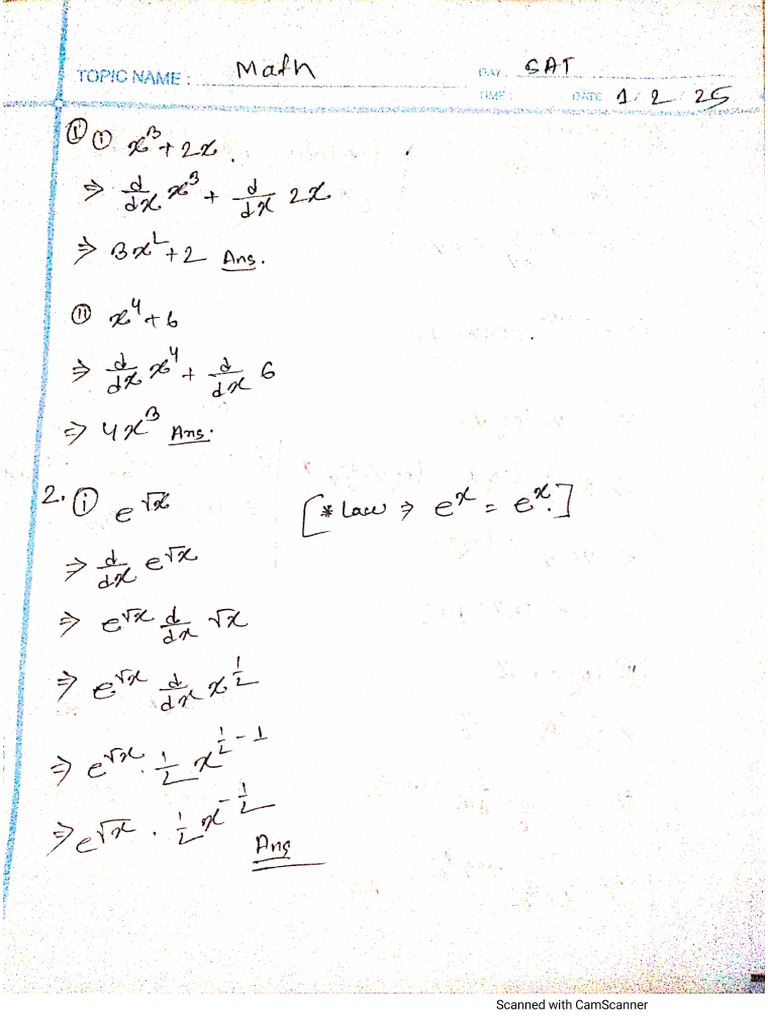 TOPIC NAME : Math DAY : SAT
TIME : DATE 1 / 2 / 25
① ⓘ x³ + 2x.
⇒ d/dx x³ + d/dx 2x
⇒ 3x² + 2 Ans.
ⓘⓘ x⁴ + 6
⇒ d/dx x⁴ + d/dx 6
⇒ 4x³ Ans.
2. ⓘ e^√x [* Law ⇒ e^x = e^x.]
⇒ d/dx e^√x
⇒ e^√x d/dx √x
⇒ e^√x d/dx x^1/2
⇒ e^√x . 1/2 x^1/2 - 1
⇒ e^√x . 1/2 x^-1/2
Ans
Scanned with CamScanner